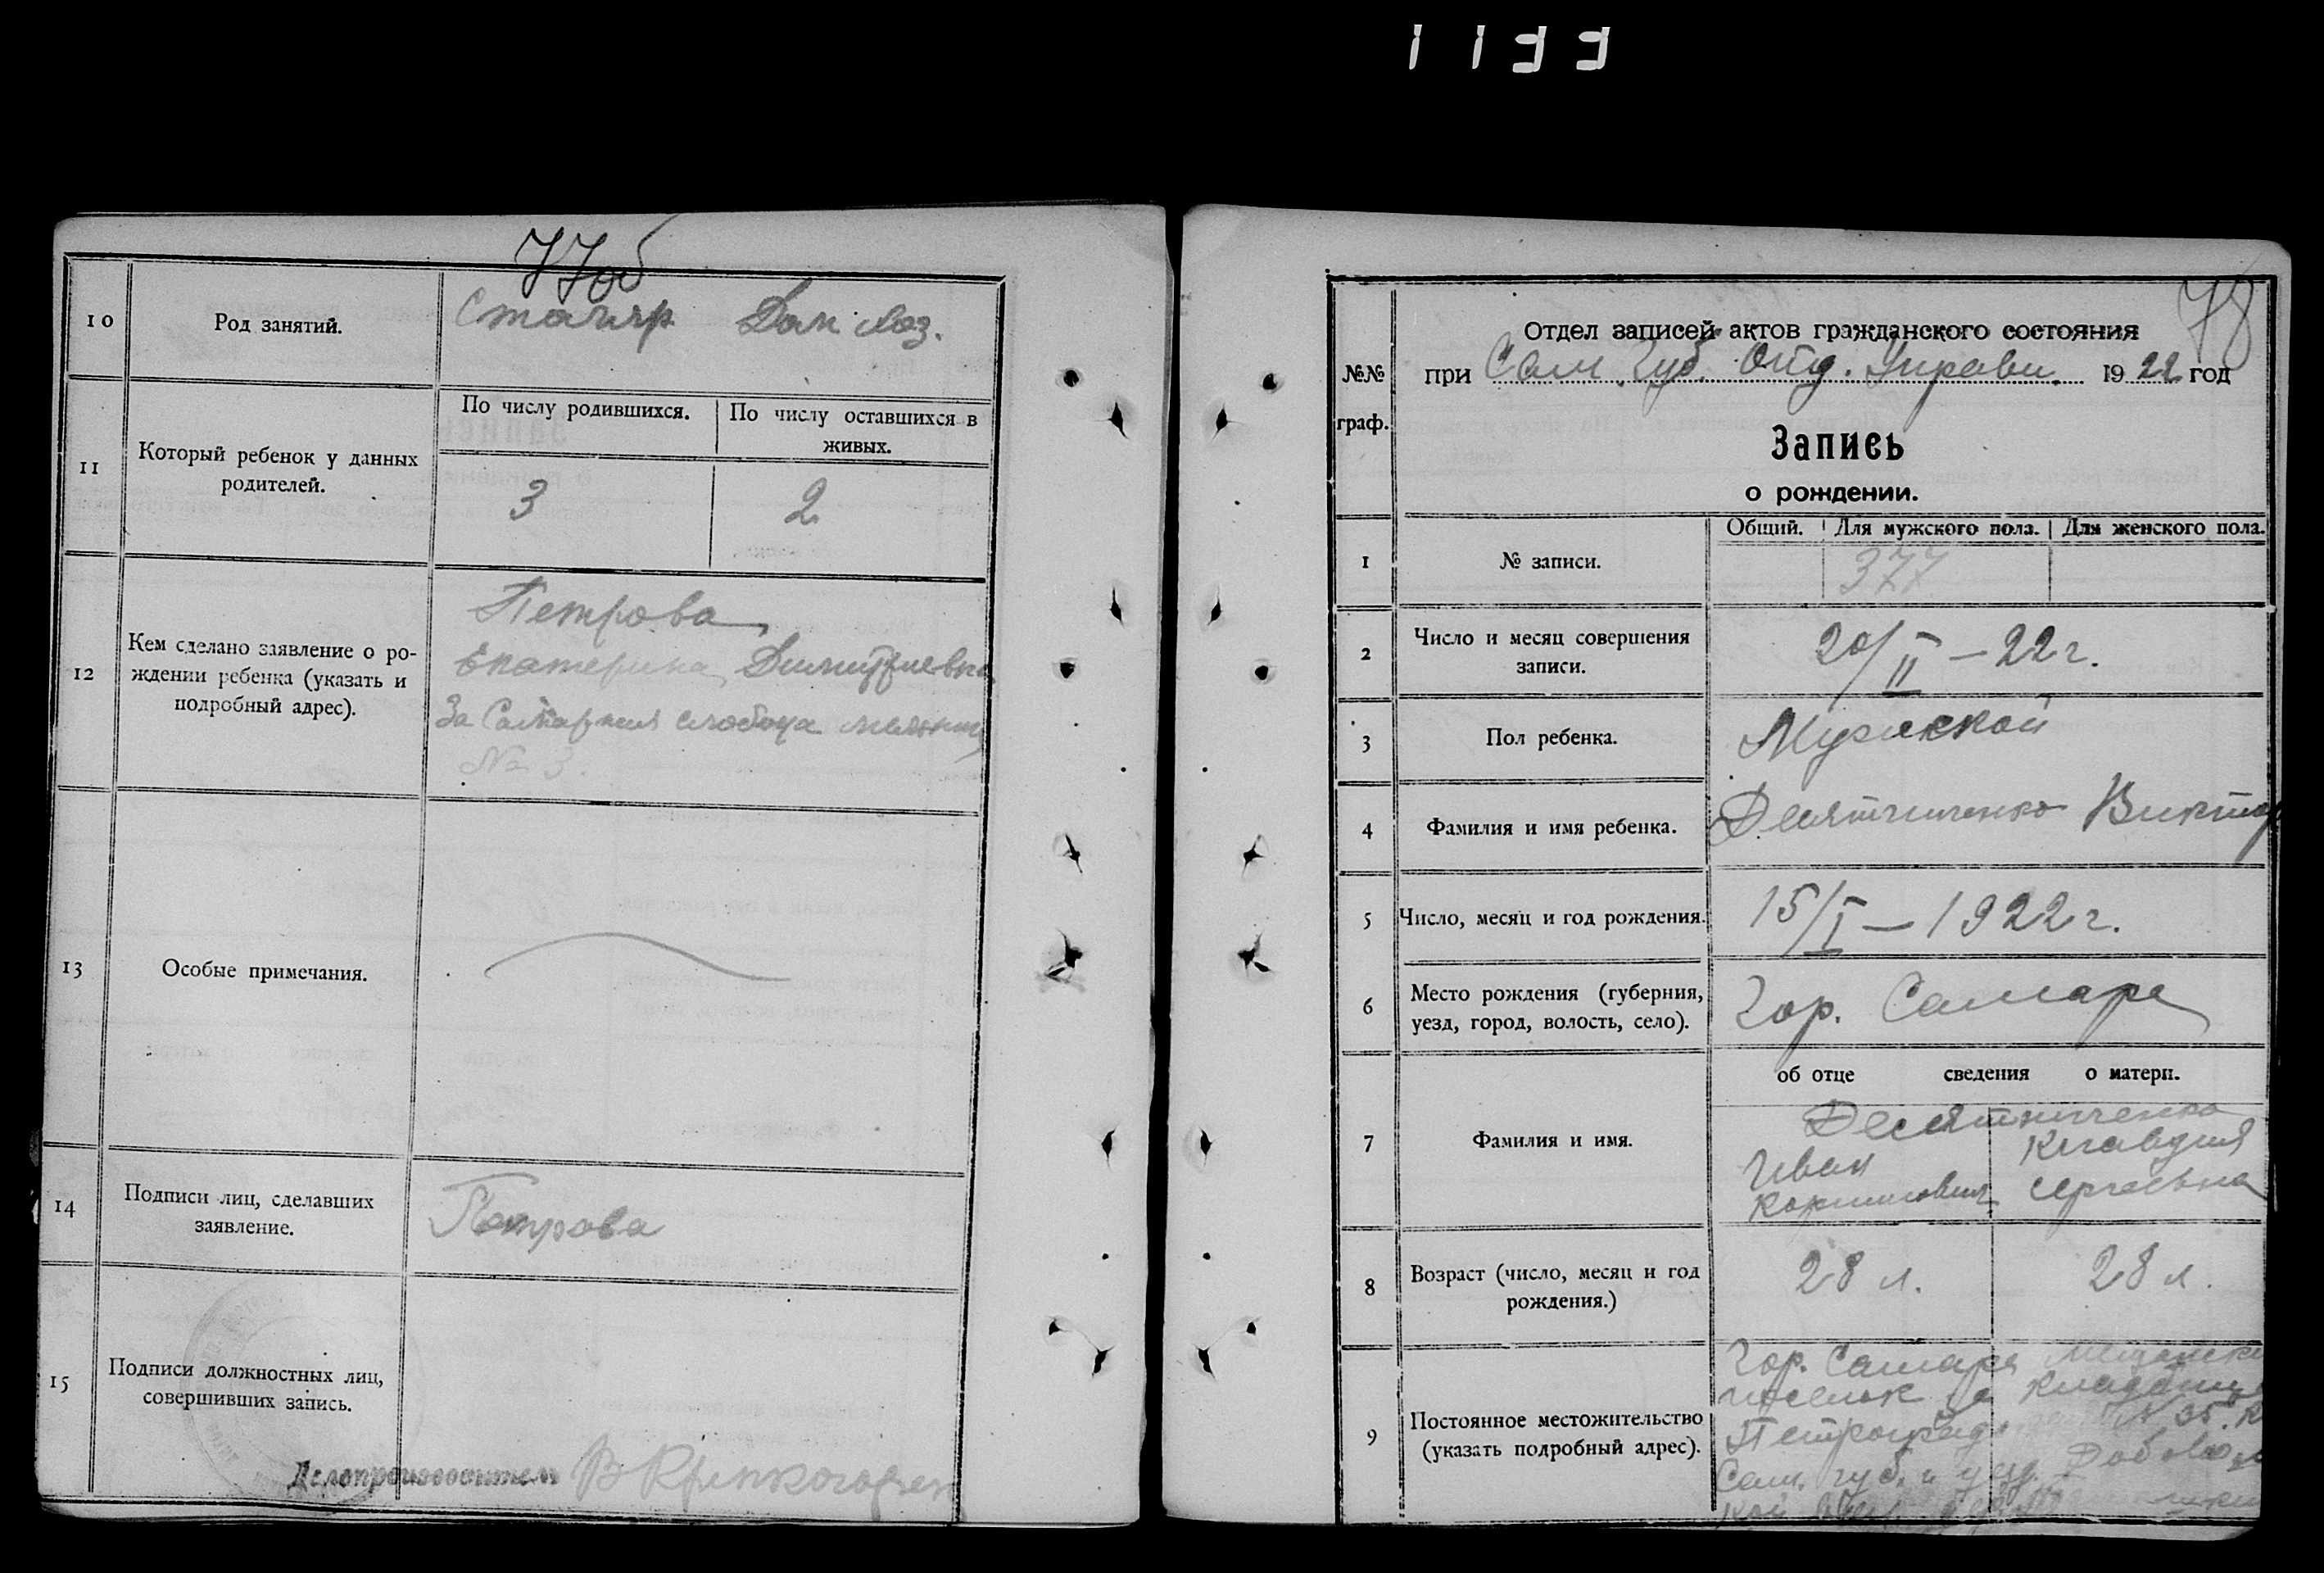 1133
77 об
10
Род занятий.
Столяр
Дом хоз.
11
Который ребенок у данных
родителей.
По числу родившихся.
По числу оставшихся в
живых.
3
2
12
Кем сделано заявление о ро-
ждении ребенка (указать и
подробный адрес).
Петрова
Екатерина Димитриевна
За Самаркой слобода
№ 3.
13
Особые примечания.
14
Подписи лиц, сделавших
заявление.
Петрова
15
Подписи должностных лиц,
совершивших запись.
Делопроизводитель
78
№№
граф.
Отдел записей актов гражданского состояния
при Сам. Губ. Отд. Управл. 1922 год
Запись
о рождении.
1
№ записи.
Общий.
Для мужского пола.
Для женского пола.
377
2
Число и месяц совершения
записи.
20/II – 22 г.
3
Пол ребенка.
Мужской
4
Фамилия и имя ребенка.
Десятниченко Виктор
5
Число, месяц и год рождения.
15/I – 1922 г.
6
Место рождения (губерния,
уезд, город, волость, село).
Гор. Самара
об отце сведения о матери.
7
Фамилия и имя.
Десятниченко
Иван
Корнилович
Клавдия
Сергеевна
8
Возраст (число, месяц и год
рождения.)
28 л.
28 л.
9
Постоянное местожительство
(указать подробный адрес).
Гор. Самара
№ 35.
Сам. губ. и уезд.